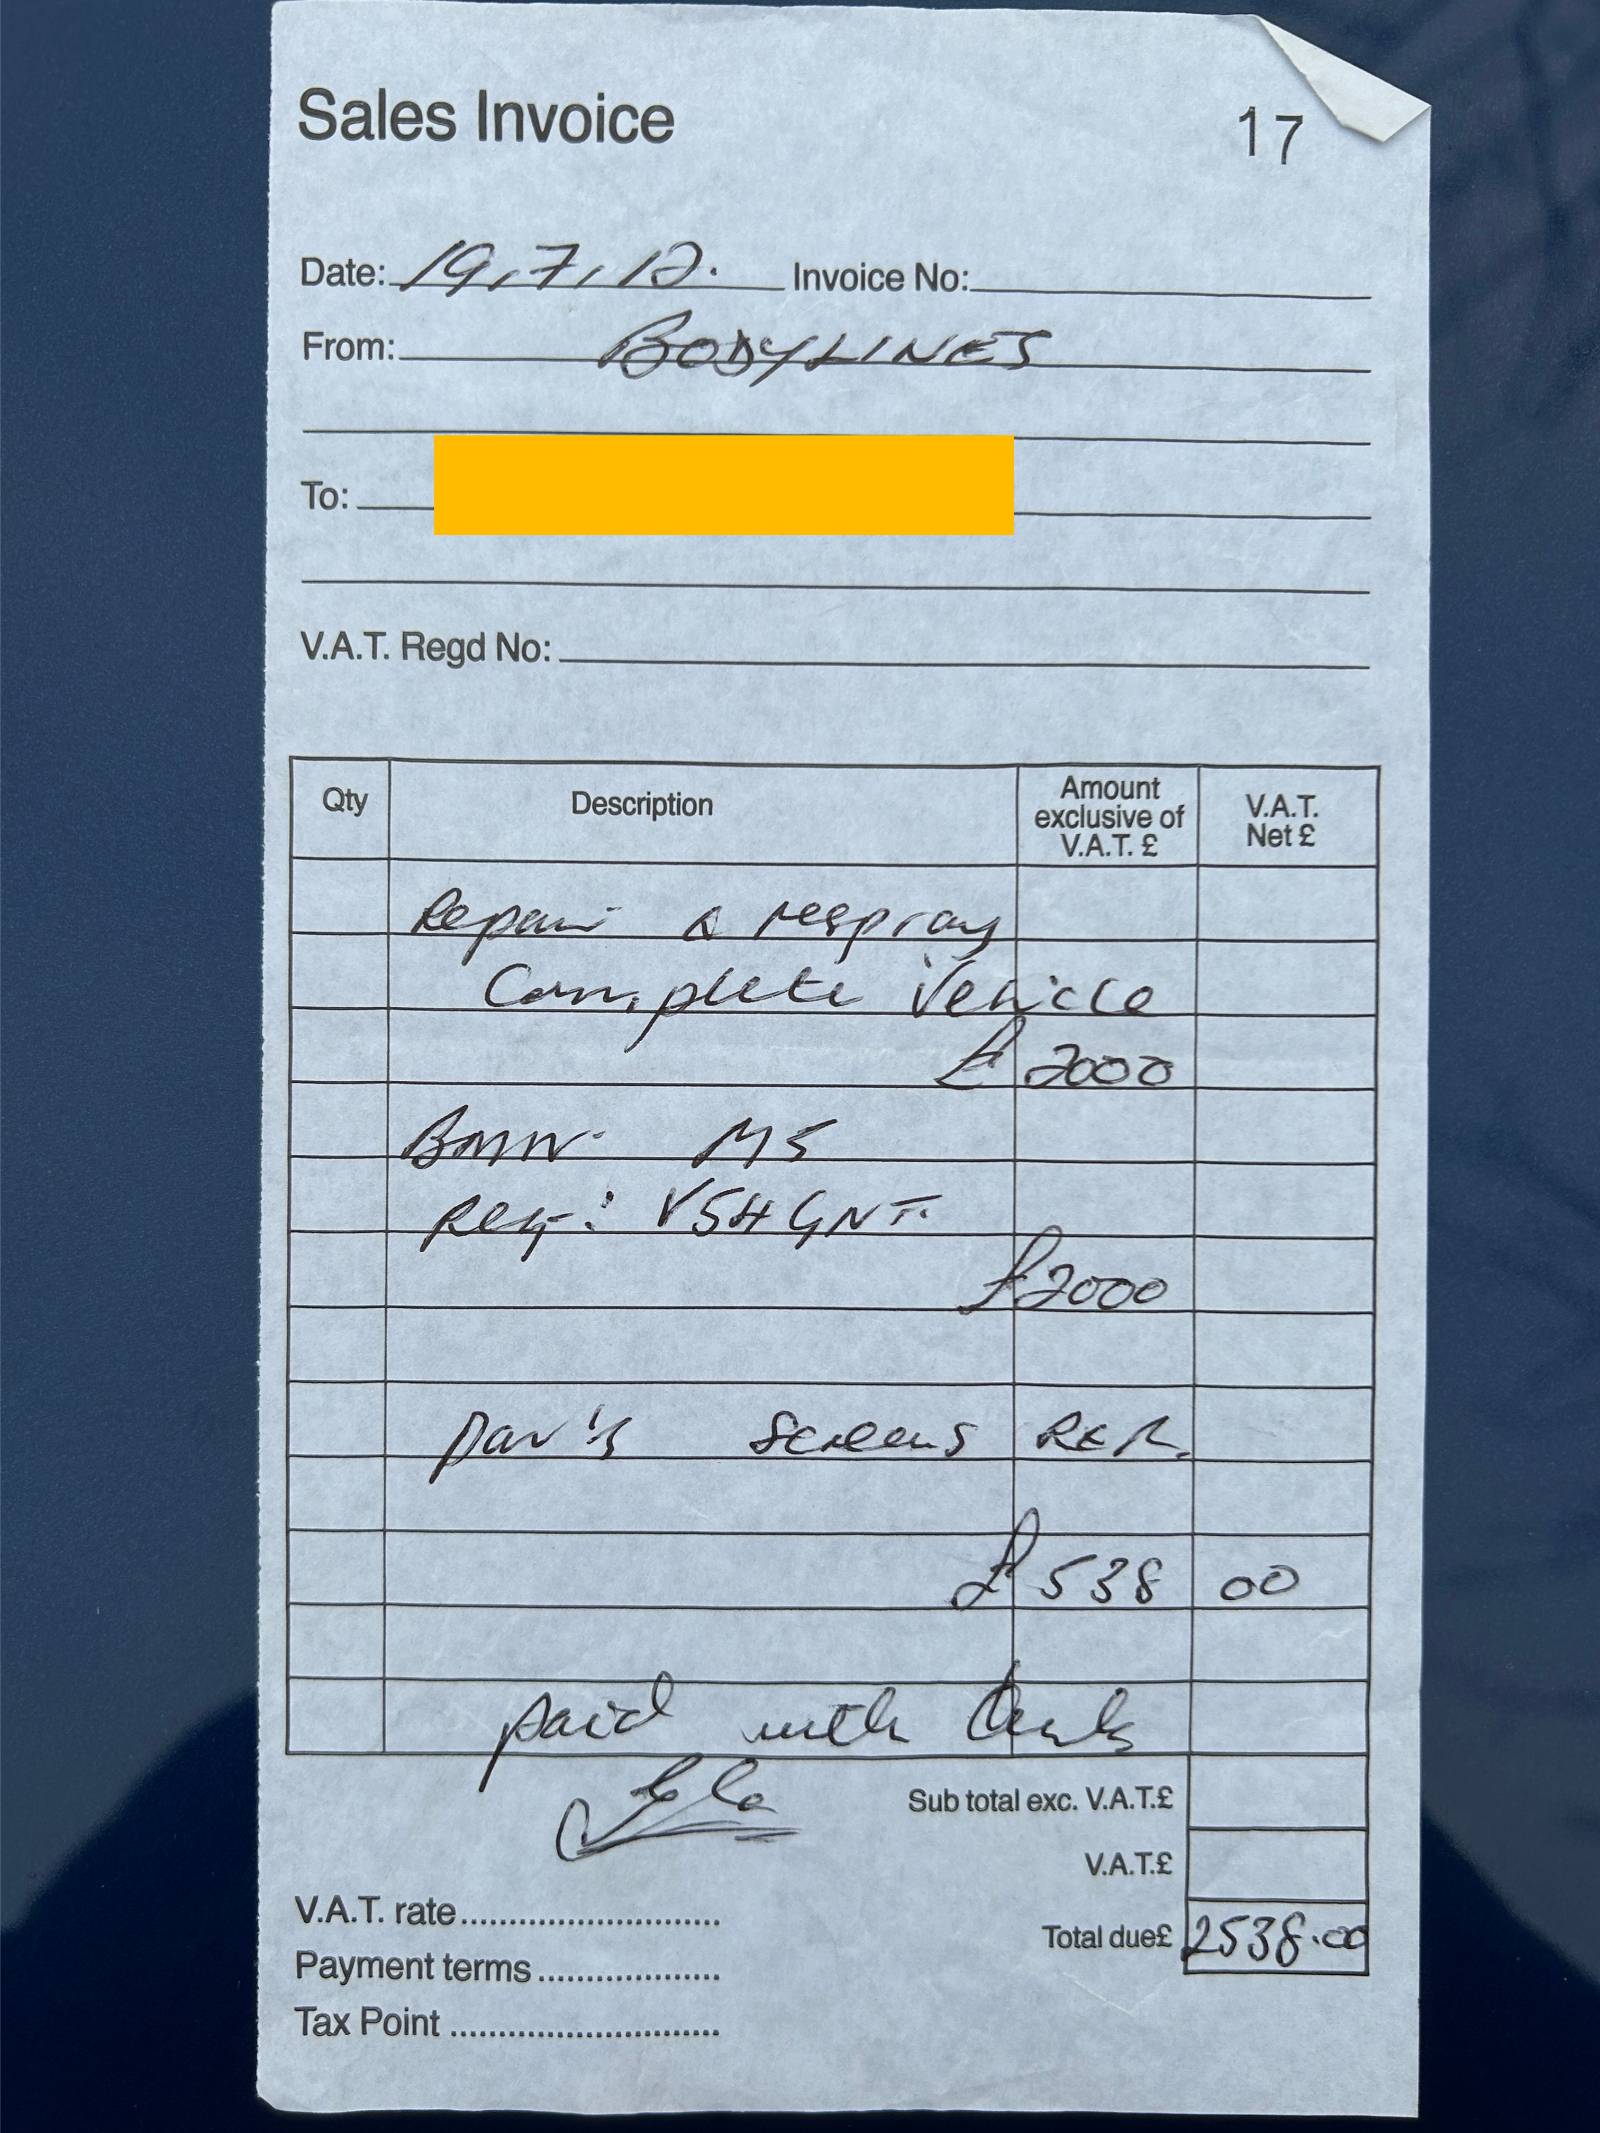 Sales Invoice
17
Date: 19,7,12. Invoice No:
From: BODYLINES
To:
V.A.T. Regd No:
Qty Description Amount exclusive of V.A.T. £ V.A.T. Net £
Repair & respray
Complete Vehicle
£ 2000
BMW. M5
Reg: V5HGNT.
£2000
Parts Screens RER.
£ 538 00
paid with thanks
Sub total exc. V.A.T.£
V.A.T.£
V.A.T. rate............................
Total due£ 2538.00
Payment terms...................
Tax Point............................